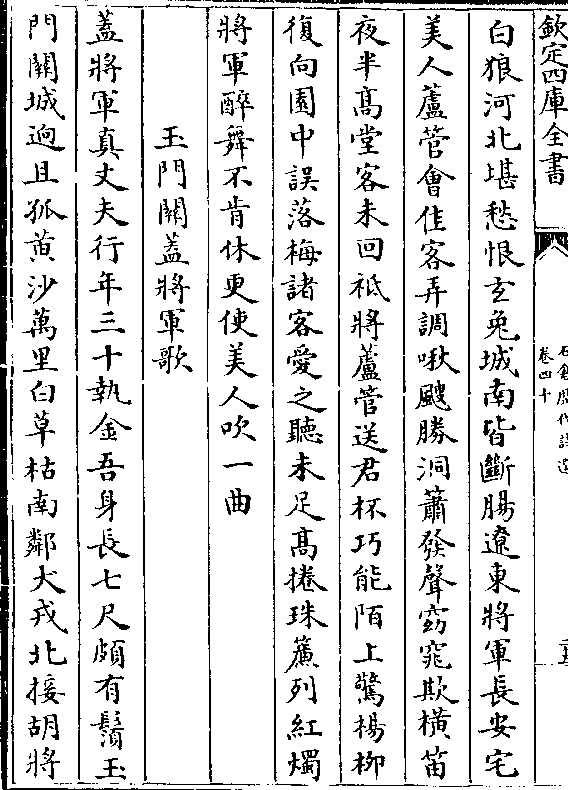 欽定四庫全書
卷四十
白狼河北堪愁恨玄兔城南皆斷腸遼東將軍長安宅
美人蘆管會佳客弄調啾颼勝洞簫發聲窈窕欺橫笛
夜半髙堂客未回祗將蘆管送君杯巧能陌上驚楊柳
復向園中誤落梅諸客愛之聽未足髙捲珠簾列紅燭
將軍醉舞不肯休更使美人吹一曲
玉門關蓋將軍歌
蓋將軍真丈夫行年三十執金吾身長七尺頗有鬚玉
門關城逈且孤黃沙萬里白草枯南鄰犬戎北接胡將